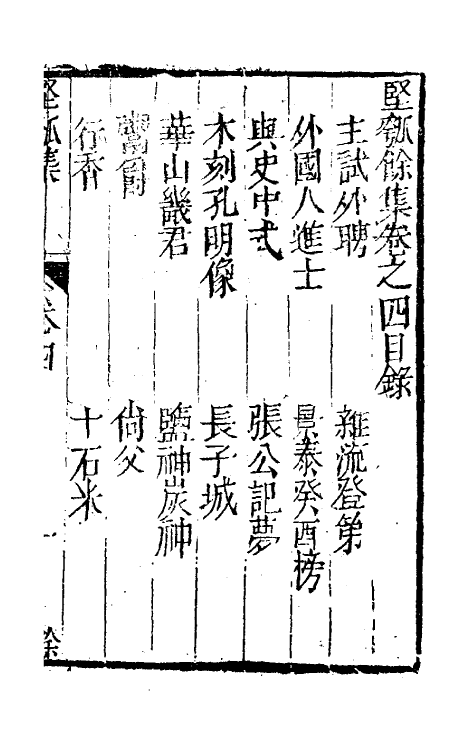 堅瓠餘集卷之四目錄
主試外聘　雜流登第
外國人進士　景泰癸酉榜
與史中式　張公記夢
木刻孔明像　長子城
華山畿君　鹽神炭神
鬻爵　尚父
行香　十石米
堅瓠集　卷四　一　餘